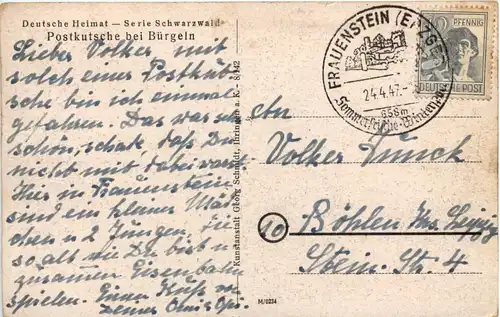 Deutsche Heimat — Serie Schwarzwald
Postkutsche bei Bürgeln
Lieber Volker, mit
solch einer Postkut-
sche bin ich einmal
gefahren. Das war
schön, schade, daß Du
nicht mit dabei warst
Hier in Frauenstein
sind ein kleines Mäd-
chen u 2 Jungen, die
so alt die Du bist u
zusammen Eisenbahn
spielen. Einen Kuß v.
Deiner Omi & Opi.
Kunstanstalt Georg Schmidt, Ihringen a. K. - 8/42
M/0234
FRAUENSTEIN (ERZGEB)
24.4.47.
658m
Sommerfrische-Wintersport
PFENNIG
DEUTSCHE POST
An
Volker Funck
10 Böhlen Krs. Leipzig
Stein-Str. 4